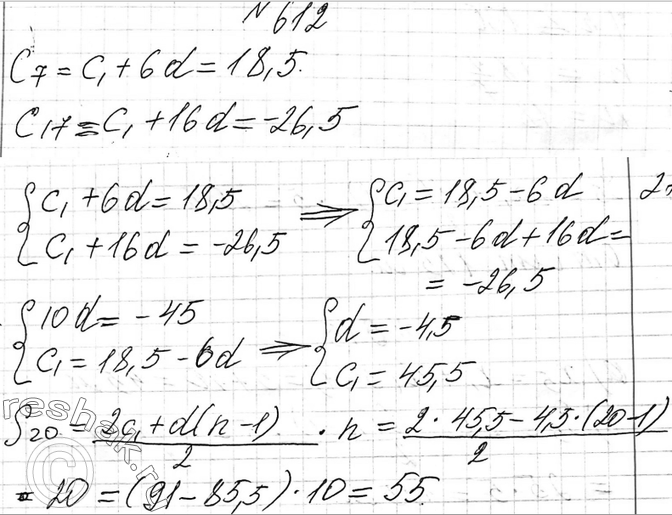 N 612
C₇ = C₁ + 6d = 18,5.
C₁₇ = C₁ + 16d = -26,5
{ C₁ + 6d = 18,5 ⇒ { C₁ = 18,5 - 6d
{ C₁ + 16d = -26,5 { 18,5 - 6d + 16d =
= -26,5
{ 10d = -45 ⇒ { d = -4,5
{ C₁ = 18,5 - 6d { C₁ = 45,5
S₂₀ = (2C₁ + d(n-1))/2 · n = (2 · 45,5 - 4,5 · (20-1))/2
· 20 = (91 - 85,5) · 10 = 55
reshak.ru